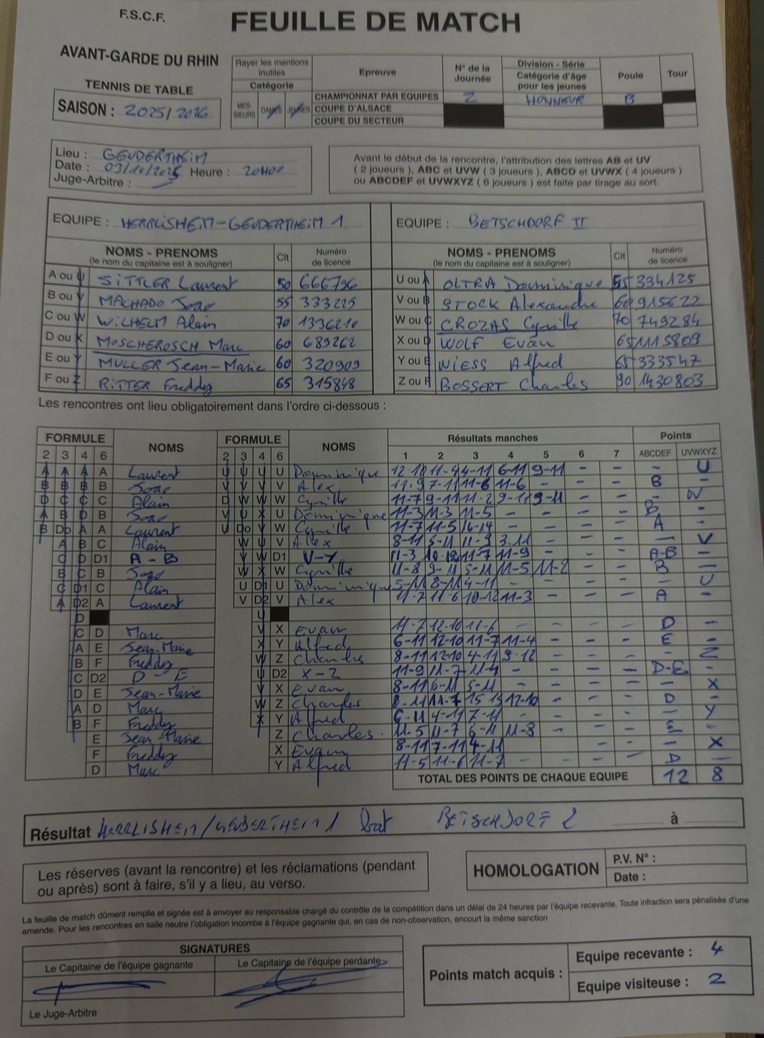 F.S.C.F.
FEUILLE DE MATCH
AVANT-GARDE DU RHIN
TENNIS DE TABLE
SAISON : 2025/2026
Rayer les mentions inutiles
Catégorie
MESSIEURS DAMES JEUNES
Epreuve
CHAMPIONNAT PAR EQUIPES
COUPE D'ALSACE
COUPE DU SECTEUR
N° de la Journée
2
Division - Série
Catégorie d'âge pour les jeunes
HONNEUR
Poule
B
Tour
Lieu : GEUDERTHEIM
Date : 03/10/2025 Heure : 20H00
Juge-Arbitre :
Avant le début de la rencontre, l'attribution des lettres AB et UV
(2 joueurs), ABC et UVW (3 joueurs), ABCD et UVWX (4 joueurs)
ou ABCDEF et UVWXYZ (6 joueurs) est faite par tirage au sort.
EQUIPE : HERRLISHEIM-GEUDERTHEIM 1
EQUIPE : BETSCHDORF II
NOMS - PRENOMS
(le nom du capitaine est à souligner)
Clt
Numéro de licence
A ou U SITTLER Laurent 50 666796
B ou V MACHADO Joao 55 333225
C ou W WILHELM Alain 70 1336210
D ou X MOSCHEROSCH Marc 60 685262
E ou Y MULLER Jean-Marie 60 320909
F ou Z RITTER Freddy 65 315848
NOMS - PRENOMS
(le nom du capitaine est à souligner)
Clt
Numéro de licence
U ou A OLTRA Dominique 55 334125
V ou B STOCK Alexandre 60 915622
W ou C CROZAS Cyrille 70 749284
X ou D WOLF Evan 65 1115809
Y ou E WIESS Alfred 65 333547
Z ou F BOSSERT Charles 90 1430803
Les rencontres ont lieu obligatoirement dans l'ordre ci-dessous :
FORMULE NOMS FORMULE NOMS Résultats manches Points
2 3 4 6 2 3 4 6 1 2 3 4 5 6 7 ABCDEF UVWXYZ
A A A A Laurent U U U U Dominique 12-10 11-4 4-11 6-11 9-11 - - - U
B B B B Joao V V V V Alex 11-9 7-11 11-6 11-6 - - B
Alain Cyrille 11-7 9-11 11-2 9-11 9-11 - - W
Joao Dominique 11-3 11-3 11-5 - - B
Laurent Cyrille 11-7 11-5 16-14 - - A
Alain Alex 8-11 5-11 11-9 3-11 - - V
A-B V-Y 11-3 10-12 11-7 11-9 - - A-B
Joao Cyrille 11-8 9-11 5-11 11-5 11-2 - - B
Alain Dominique 5-11 8-11 4-11 - - U
Laurent Alex 11-7 11-6 10-12 11-3 - - A
C D Marc X Evan 11-7 12-10 11-6 - - D
A E Jean-Marie Y Alfred 6-11 12-10 11-7 11-4 - - E
B F Freddy Z Charles 8-11 12-10 4-11 9-12 - - Z
C D2 D-E U D2 X-Z 11-9 11-7 11-4 - - D-E
D E Jean-Marie X Evan 8-11 6-11 5-11 - - X
A D Marc Z Charles 8-11 11-7 15-13 12-10 - - D
B F Freddy Y Alfred 6-11 4-11 7-11 - - Y
E Jean-Marie Z Charles 11-5 11-7 6-11 11-8 - - E
F Freddy X Evan 8-11 7-11 4-11 - - X
D Marc Y Alfred 11-5 11-6 11-7 - - D
TOTAL DES POINTS DE CHAQUE EQUIPE 12 8
Résultat HERRLISHEIM/GEUDERTHEIM 1 bat BETSCHDORF 2 à
Les réserves (avant la rencontre) et les réclamations (pendant
ou après) sont à faire, s'il y a lieu, au verso.
HOMOLOGATION
P.V. N° :
Date :
La feuille de match dûment remplie et signée est à envoyer au responsable chargé du contrôle de la compétition dans un délai de 24 heures par l'équipe recevante. Toute infraction sera pénalisée d'une
amende. Pour les rencontres en salle neutre l'obligation incombe à l'équipe gagnante qui, en cas de non-observation, encourt la même sanction
SIGNATURES
Le Capitaine de l'équipe gagnante
Le Capitaine de l'équipe perdante
Le Juge-Arbitre
Points match acquis :
Equipe recevante : 4
Equipe visiteuse : 2